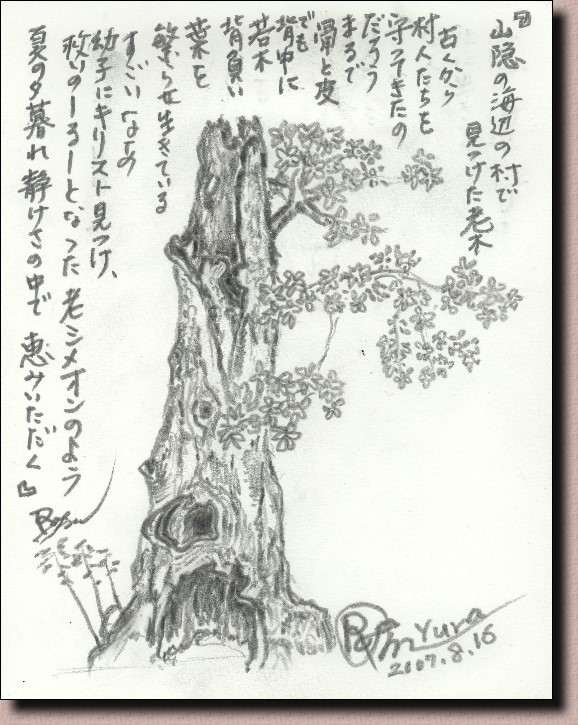 『山陰の海辺の村で
見つけた老木
古くから
村人たちを
守ってきたの
だろう
まるで
骨と皮
でも
背中に
若木
背負い
葉を
繁らせ生きている
すごいなあの
幼子にキリスト見つけ、
救いのしるしとなった老シメオンのよう
夏の夕暮れ静けさの中で恵みいただく』
Yura
2007.8.16